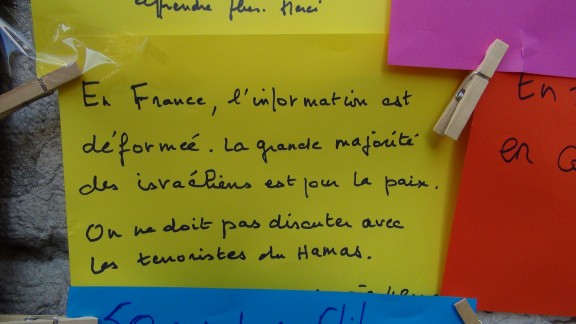 apprendre plus. Merci
En France, l'information est
déformeé. La grande majorité
des israéliens est pour la paix.
On ne doit pas discuter avec
les terroristes du Hamas.
En
en